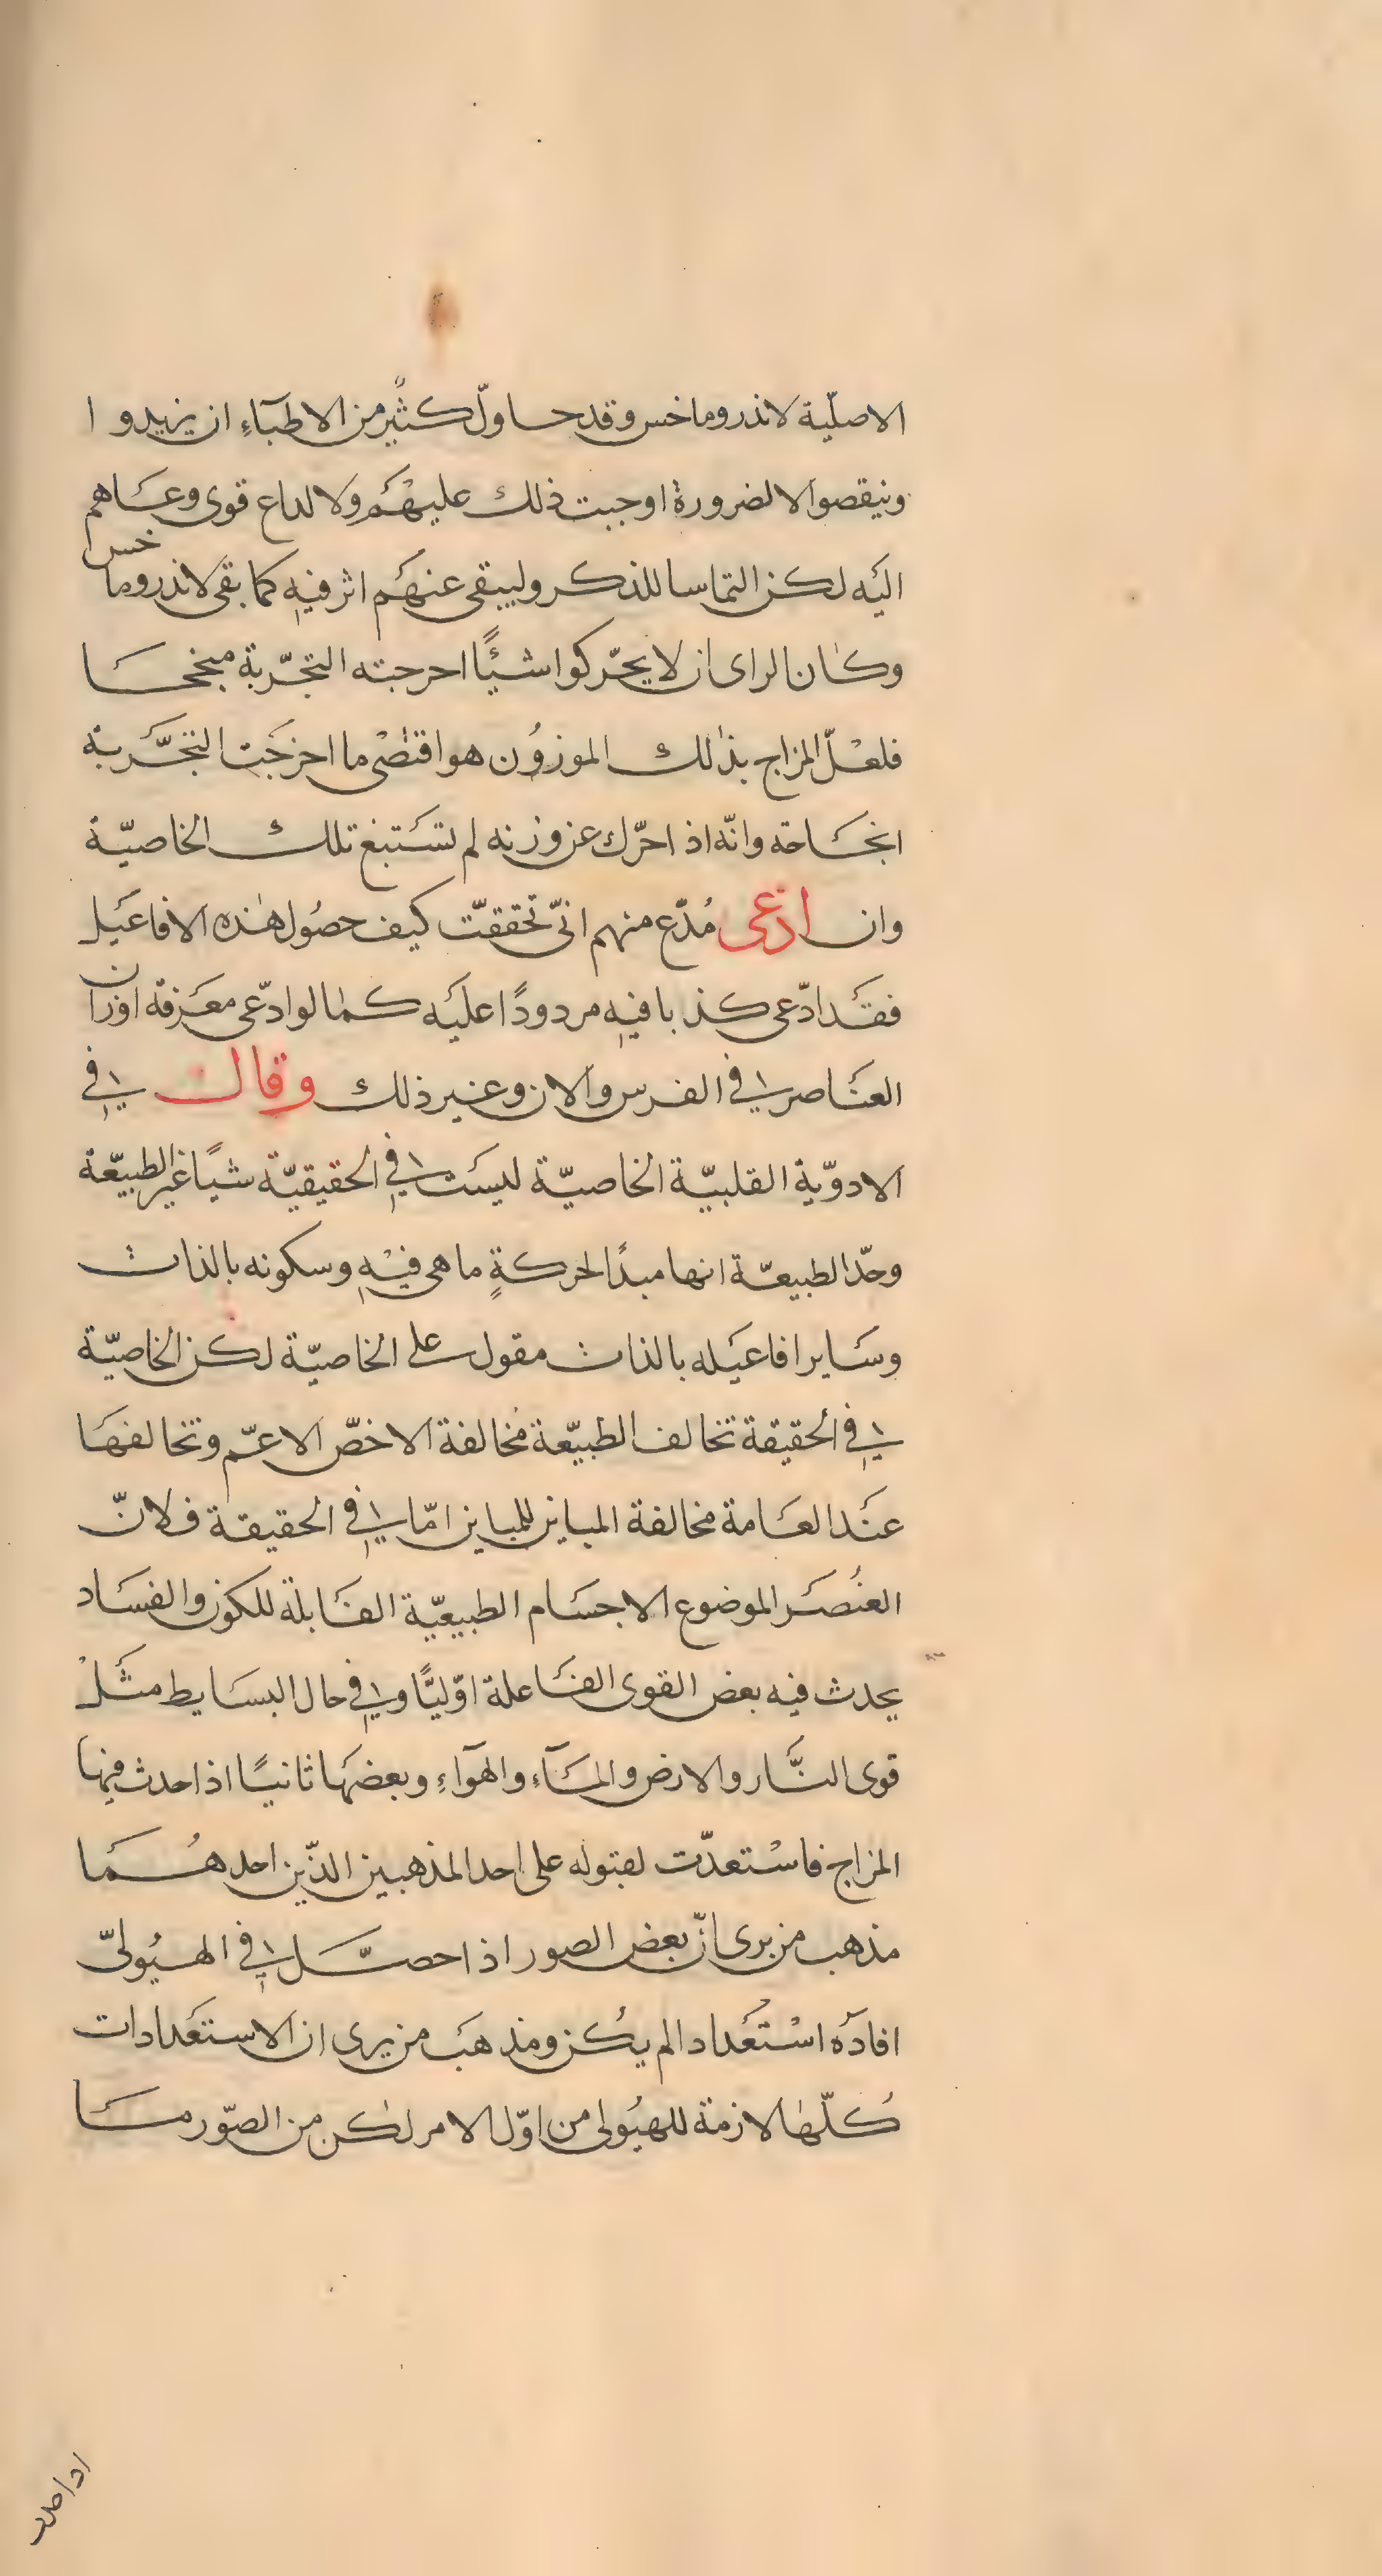 الاصلّية لاندروماخس وقد حاولّ كثير من الاطبآءِ ان يزيدوا
وينقصوا لا لضرورة اوجبت ذلك عليهم ولا لداع قوى دعاهم
اليه لكن التماسا للذكر وليبقى عنهم اثر فيهِ كما بقى لاندروما خس
وكان الراى ان لا يحرّكوا شيئًا احرجته التجرّبة منجحا
فلعلّ المزاج بذالك الموزوُن هو اقتضى ما اخرجت التجّربة
انجاحته وانّه اذ احرّك عن وزنه لم تستتبغ تلك الخاصيّة
وان ادعى مُدّع منهم انّى تحققت كيف حصُول هٰذه الافاعيل
فقد ادّعى كذبا فيهِ مردودًا عليه كمٰا لو ادّعى معرفة اوزان
العناصر فى الفرس والان وغير ذلك وقال فى
الادوّية القلبيّة الخاصيّة ليست فى الحقيقيّة شيًا غير الطبيّعة
وحدّ الطبيعّة انها مبدأ لحركةٍ ما هى فيْهِ وسكونه بالذات
وساير افاعيله بالذات مقول على الخاصيّة لكن الخاصيّة
فى الحقيقة تخالف الطبيّعة مُخالفة الاخصّ الاعمّ وتخالفها
عند العامة مخالفة المباين للمباين امّا فى الحقيقة فلانّ
العنُصر الموضوع الاجسام الطبيعيّة القابلة للكون والفساد
يحدث فيه بعض القوى الفاعلة اوّليًّا وفى حال البسايط مثلْ
قوى النّار والارض والمآءِ والهوآءِ وبعضها ثانيًا اذا حدث فيها
المزاج فاسْتعدّت لقبوله على احد المذهبين الذّين احدهُما
مذهب من يرى انّ بعض الصور اذا حصّل فى الهيُولىّ
افادَه اسْتعُدادا لم يكن ومذهب من يرى ان الاستعدادات
كُلّهٰا لازمة للهيُولى من اوّل الامر لٰكن من الصّور ما